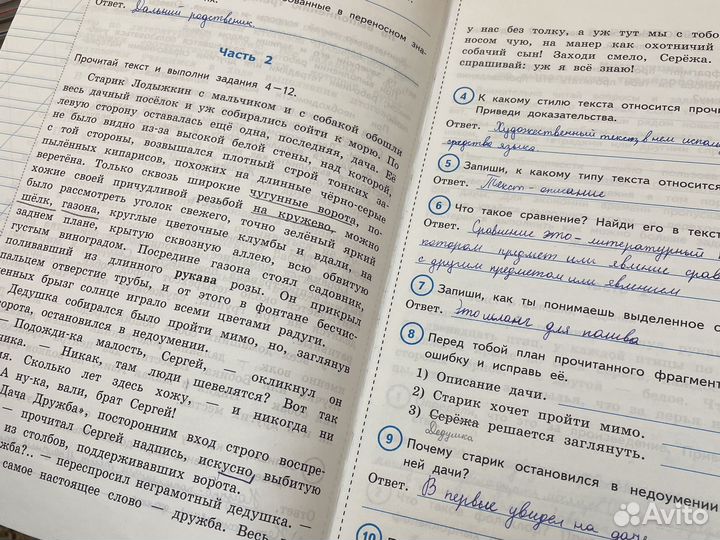 зованные в переносном зна-
Ответ. Дальний родственик
Часть 2
Прочитай текст и выполни задания 4—12.
Старик Лодыжкин с мальчиком и с собакой обошли
весь дачный посёлок и уж собирались сойти к морю. По
левую сторону оставалась ещё одна, последняя, дача. Её
не было видно из-за высокой белой стены, над которой,
с той стороны, возвышался плотный строй тонких за-
пылённых кипарисов, похожих на длинные чёрно-серые
веретёна. Только сквозь широкие чугунные ворота, по-
хожие своей причудливой резьбой на кружево, можно
было рассмотреть уголок свежего, точно зелёный яркий
шёлк, газона, круглые цветочные клумбы и вдали, на
заднем плане, крытую сквозную аллею, всю обвитую
густым виноградом. Посредине газона стоял садовник,
поливавший из длинного рукава розы. Он прикрыл
пальцем отверстие трубы, и от этого в фонтане бесчис-
енных брызг солнце играло всеми цветами радуги.
Дедушка собирался было пройти мимо, но, заглянув
ворота, остановился в недоумении.
— Подожди-ка малость, Сергей, — окликнул он
ика. — Никак, там люди шевелятся? Вот так
ия. Сколько лет здесь хожу, — и никогда ни
А ну-ка, вали, брат Сергей!
Дача Дружба», посторонним вход строго воспре-
— прочитал Сергей надпись, искусно выбитую
из столбов, поддерживавших ворота.
ужба?.. — переспросил неграмотный дедушка. —
самое настоящее слово — дружба. Весь
у нас без толку, а уж тут мы с тобо
носом чую, на манер как охотничий
собачий сын! Заходи смело, Серёжа.
спрашивай: уж я всё знаю!
4 К какому стилю текста относится проч
Приведи доказательства.
Ответ. Художественный текст, в нем испол
средства языка
5 Запиши, к какому типу текста относится
Ответ. Текст - описание
6 Что такое сравнение? Найди его в текст
Ответ. Сравнение это - литературный
котором предмет или явление срав
с другим предметом или явлением
7 Запиши, как ты понимаешь выделенное с
Ответ. Это шланг для полива
8 Перед тобой план прочитанного фрагмен
ошибку и исправь её.
1) Описание дачи.
2) Старик хочет пройти мимо.
3) Серёжа решается заглянуть.
Дедушка
9 Почему старик остановился в недоумении
ней дачи?
Ответ. В первые увидел на даче
10
Avito